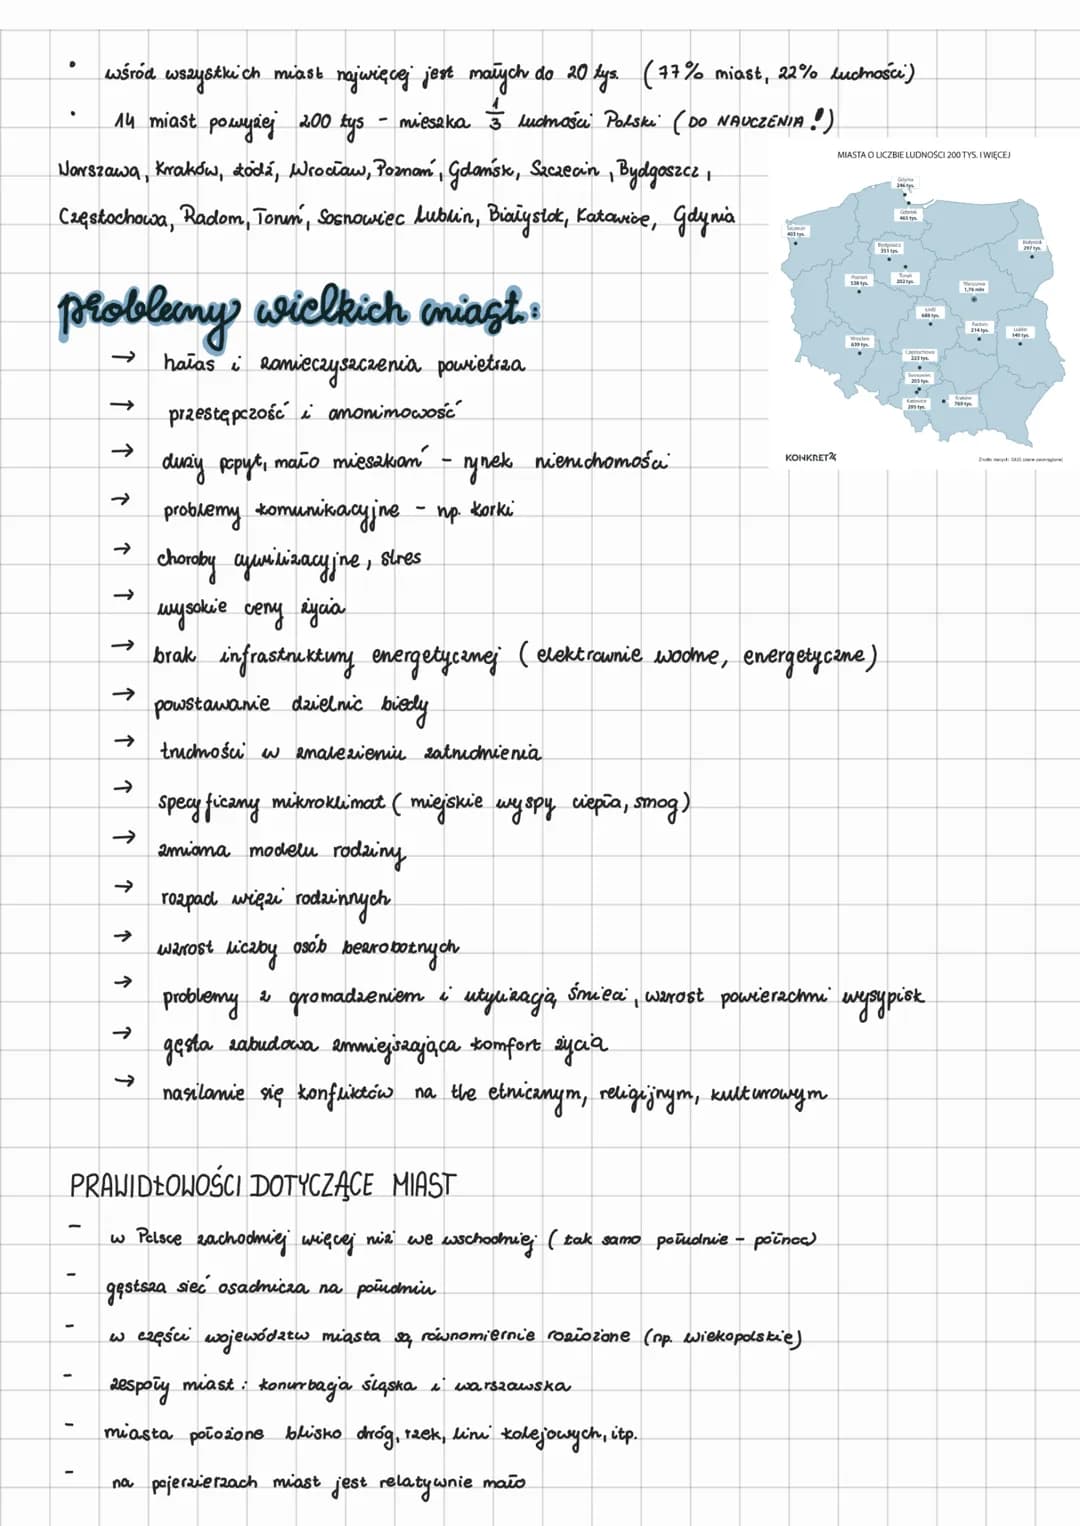 • wśród wszystkich miast najwięcej jest małych do 20 tys. (77% miast, 22% ludności)
• 14 miast powyżej 200 tys - mieszka 1/3 ludności Polski (DO NAUCZENIA!)
Warszawa, Kraków, Łódź, Wrocław, Poznań, Gdańsk, Szczecin, Bydgoszcz,
Częstochowa, Radom, Toruń, Sosnowiec Lublin, Białystok, Katowice, Gdynia
MIASTA O LICZBIE LUDNOŚCI 200 TYS. I WIĘCEJ
Gdynia
246 tys.
Gdańsk
463 tys.
Szczecin
403 tys.
Białystok
297 tys.
Bydgoszcz
351 tys.
Toruń
202 tys.
Poznań
538 tys.
Warszawa
1,76 mln
Łódź
688 tys.
Radom
214 tys.
Lublin
340 tys.
Wrocław
639 tys.
Częstochowa
223 tys.
Sosnowiec
203 tys.
Katowice
295 tys.
Kraków
769 tys.
KONKRET24
Źródło danych: GUS (dane zaokrąglone)
problemy wielkich miast:
→ hałas i zanieczyszczenia powietrza
→ przestępczość i anonimowość
→ duży popyt, mało mieszkań - rynek nieruchomości
→ problemy komunikacyjne - np. korki
→ choroby cywilizacyjne, stres
→ wysokie ceny życia
→ brak infrastruktury energetycznej (elektrownie wodne, energetyczne)
→ powstawanie dzielnic biedy
→ trudności w znalezieniu zatrudnienia
→ specyficzny mikroklimat (miejskie wyspy ciepła, smog)
→ zmiana modelu rodziny
→ rozpad więzi rodzinnych
→ wzrost liczby osób bezrobotnych
→ problemy z gromadzeniem i utylizacją śmieci, wzrost powierzchni wysypisk
→ gęsta zabudowa zmniejszająca komfort życia
→ nasilanie się konfliktów na tle etnicznym, religijnym, kulturowym
PRAWIDŁOWOŚCI DOTYCZĄCE MIAST
- w Polsce zachodniej więcej niż we wschodniej (tak samo południe - północ)
- gęstsza sieć osadnicza na południu
- w części województw miasta są równomiernie rozłożone (np. wielkopolskie)
- zespoły miast: konurbacja śląska i warszawska
- miasta położone blisko dróg, rzek, lini kolejowych, itp.
- na pojezierzach miast jest relatywnie mało